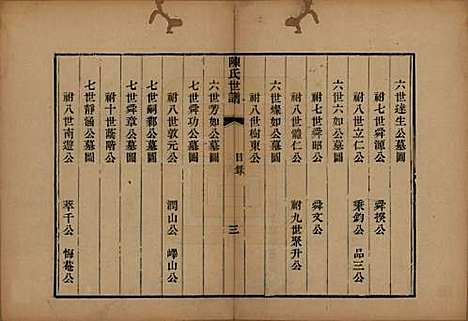 六世達生公墓圖
祔七世舜源公 舜揆公
祔八世立仁公 秉鈞公 品三公
六世六如公墓圖
祔七世舜昭公 舜文公
祔八世體仁公 祔九世聚升公
六世燦如公墓圖
祔八世樹東公
陳氏世譜 目錄 三
六世芳如公墓圖
七世舜功公墓圖
祔八世敦元公 潤山公 嶧山公
七世嗣鄒公墓圖
七世舜章公墓圖
祔十世蔭階公
七世靜涵公墓圖
祔八世南遊公 萃千公 悔菴公